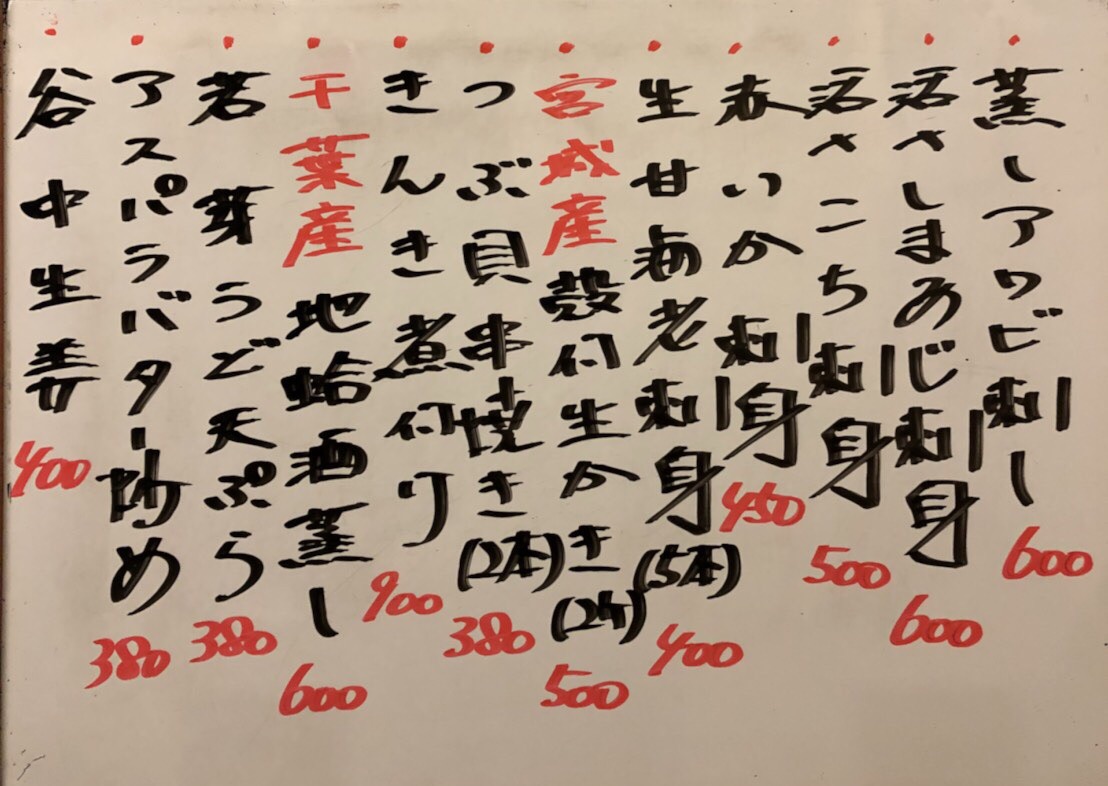 蒸しアワビ刺し 600
活〆しまあじ刺身 600
活〆こち刺身 500
赤いか刺身 450
生甘海老刺身(5本) 400
宮城産殻付生かき(2ケ) 500
つぶ貝串焼き(2本) 380
きんき煮付け 900
千葉産地蛤酒蒸し 600
若芽うど天ぷら 380
アスパラバター炒め 380
谷中生姜 400